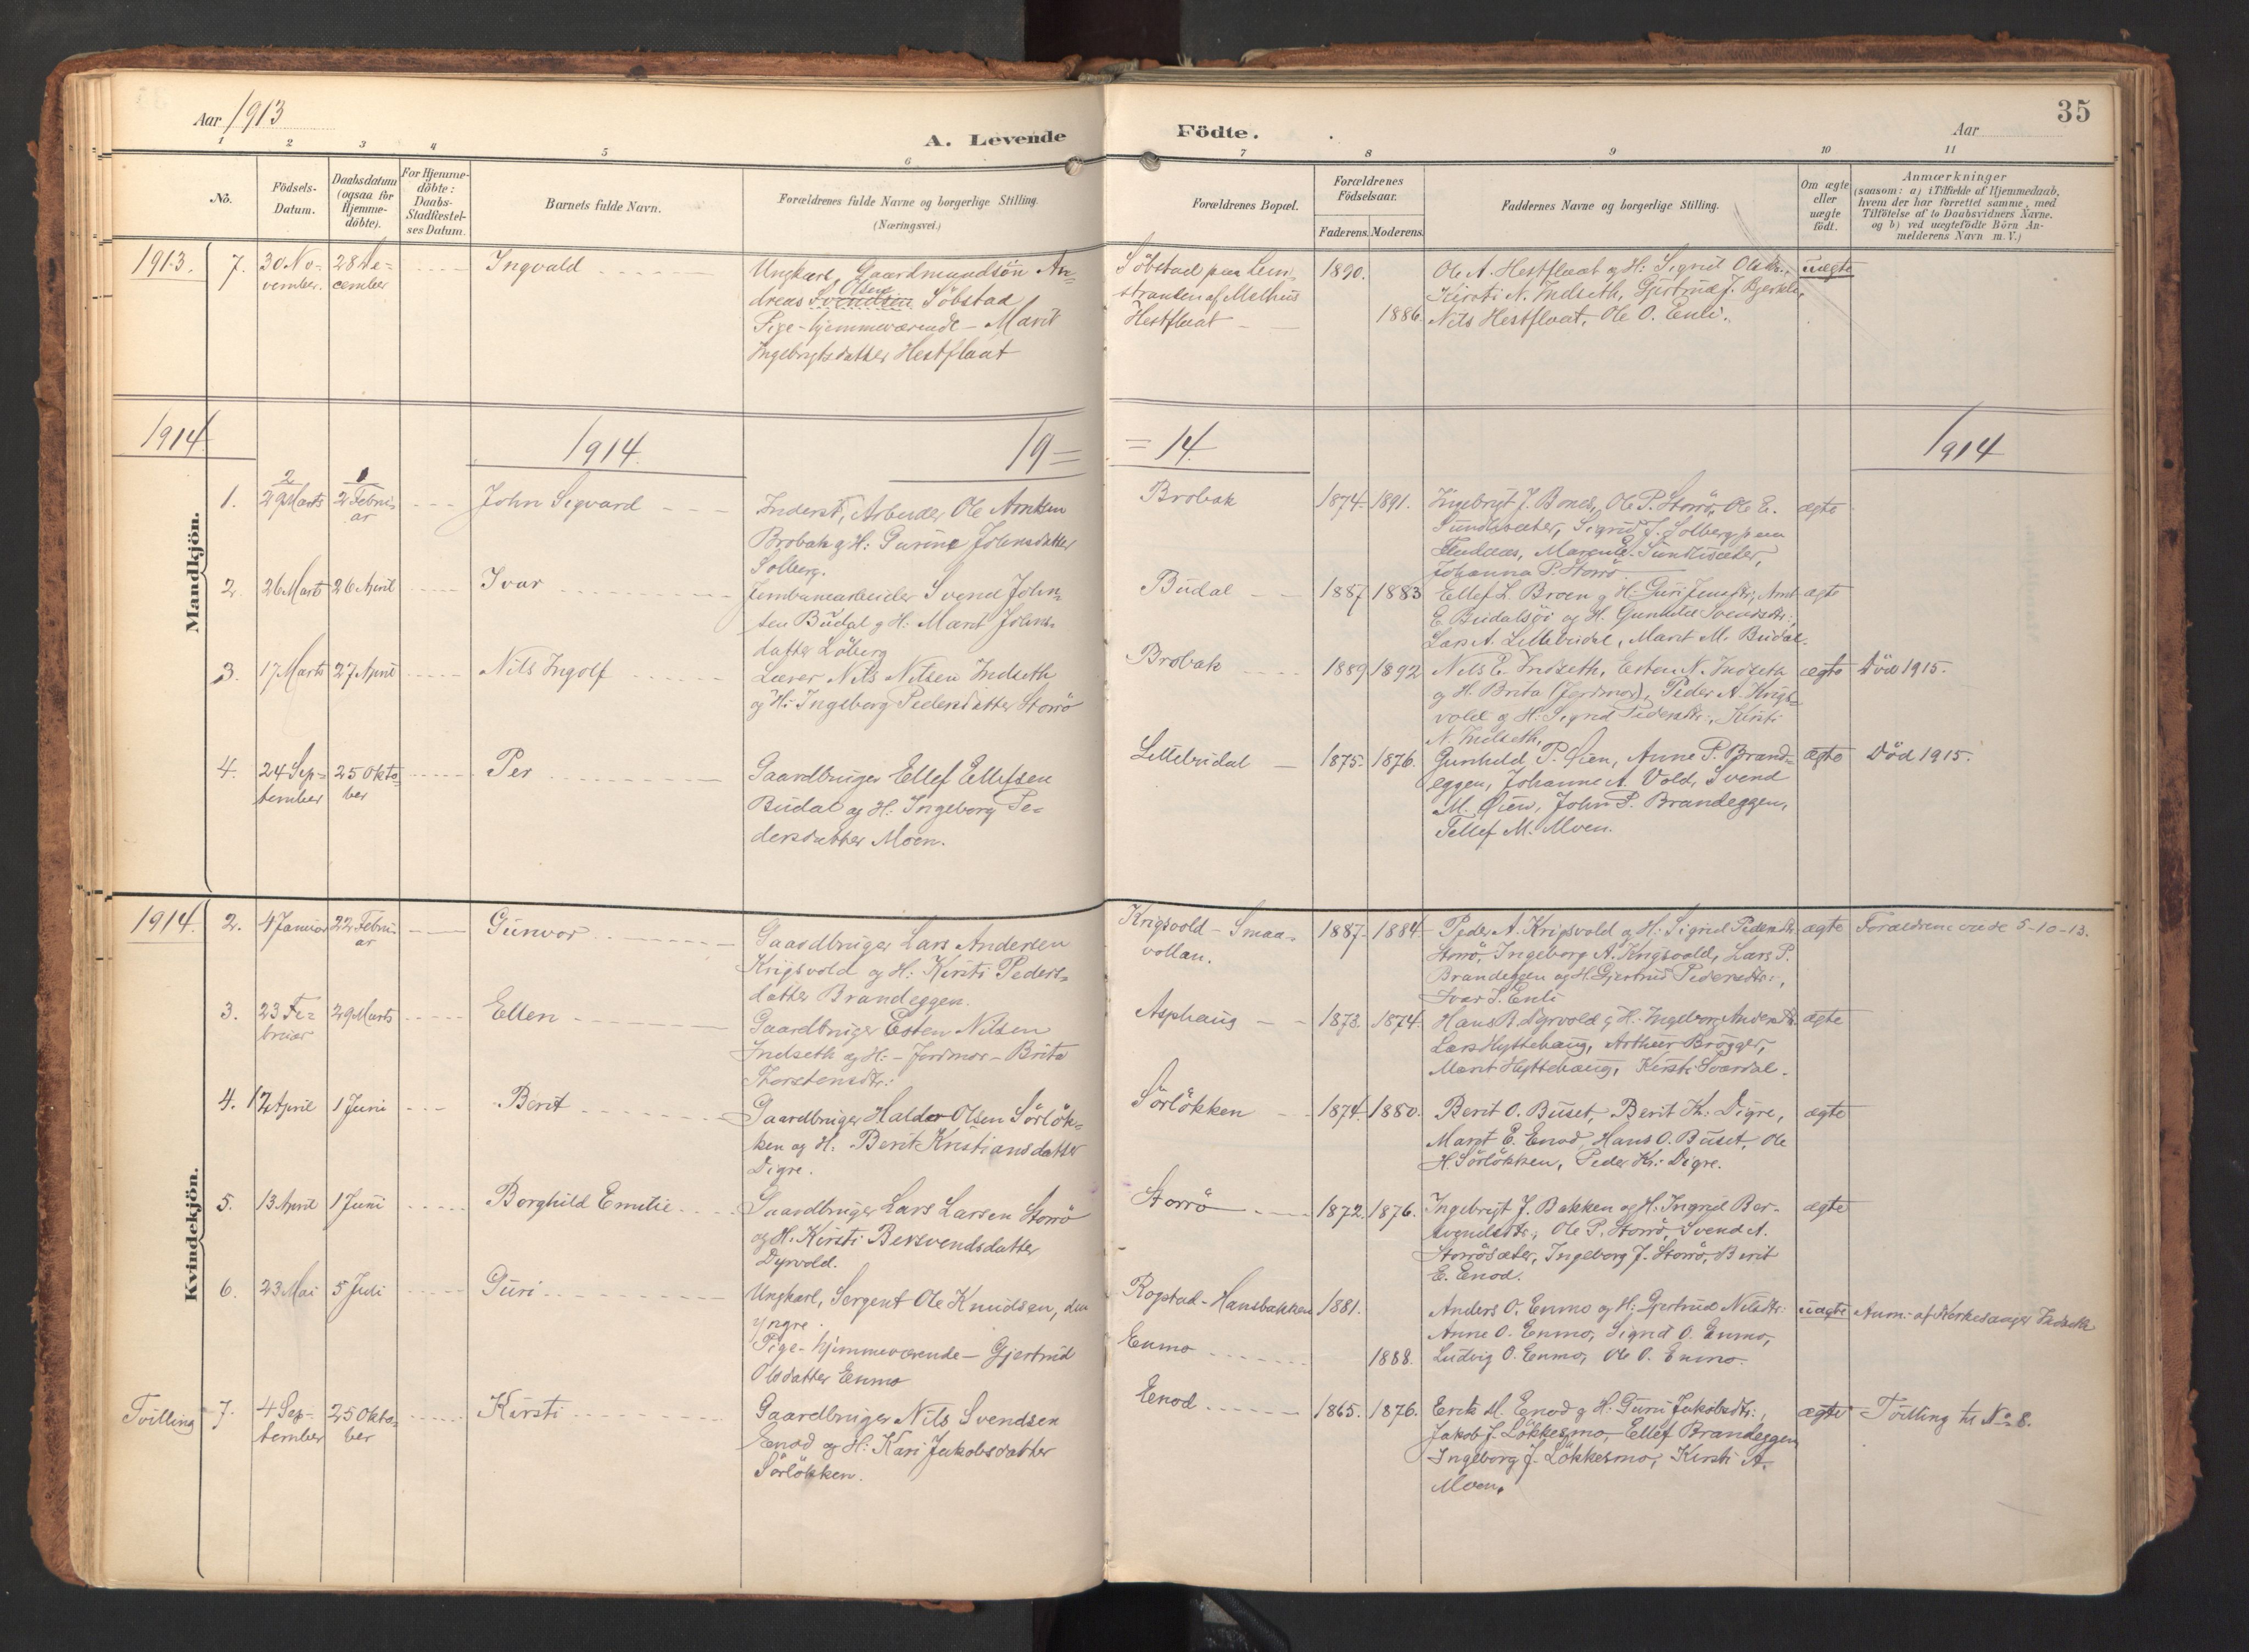 Aar 1913
A. Levende
Födte.
Aar
35
1
2
3
4
5
6
7
8
9
10
11
No.
Födsels-
Datum.
Daabsdatum
(ogsaa for
Hjemme-
döbte).
For Hjemme-
döbte:
Daabs-
Stadfæstel-
ses Datum.
Barnets fulde Navn.
Forældrenes fulde Navne og borgerlige Stilling.
(Næringsvei.)
Forældrenes Bopæl.
Forældrenes
Födselsaar.
Faderens. Moderens.
Faddernes Navne og borgerlige Stilling.
Om ægte
eller
uægte
födt.
Anmærkninger
(saasom: a) i Tilfælde af Hjemmedaab,
hvem der har forrettet samme, med
Tilföielse af to Daabsvidners Navne.
og b) ved uægtefödte Börn An-
melderens Navn m. V.)
1913. 7. 30 No-
vember.
28 De-
cember
Ingvald
Ungkarl, Gaardmandsön An-
Olsen
dreas Svendsen Söbstad
Pige - hjemmeværende - Marit
Ingebrigtsdatter Hestflaat
Söbstad paa Lein-
stranden af Melhus
Hestflaat
1890.
1886.
Ole A. Hestflaat og H: Sigrid Olsdtr.,
Kirsti N. Indseth, Gjertrud J. Bjerkli,
Nils Hestflaat, Ole O. Enli.
uægte
1914
1914.
19=
=14.
1914
Mandkjön.
2
1
1. 29 Marts
2 Febru-
ar
John Sigvard
Inderst, Arbeider Ole Arntsen
Brobak g H: Gurine Johnsdatter
Solberg.
Brobak
1874. 1891.
Ole P. Storrö, Ole E.
Sundlisæter, Sigrid J. Solberg paa
Maren E. Sundlisæter,
Johanna P. Storrö
ægte
2. 26 Marts 26 April
Ivar
Jernbanearbeider Svend John-
sen Budal g H: Marit Johns-
datter Löberg
Budal
1887 1883
Ellef L. Broen g H: Guri Jensdtr., Arnt
E. Budalsöi og H. Gunhild Svendsdtr.,
Lars A. Littlebudal, Marit M. Budal.
ægte
3. 17 Marts 27 April
Nils Ingolf
Lærer Nils Nilsen Indseth
og H: Ingeborg Pedersdatter Storrö
Brobak
1889 1892
Nils E. Indseth, Esten N. Indseth
og H. Brita (Jordmor), Peder A. Krigs-
vold g H: Sigrid Pedersdtr., Kirsti
N. Indseth.
ægte
Död 1915.
4. 24 Sep-
tember
25 Okto-
ber
Per
Gaardbruger Ellef Ellefsen
Budal og H: Ingeborg Pe-
dersdatter Moen.
Littlebudal
1875. 1876.
Gunhild P. Öien, Anne P. Brand-
eggen, Johanne A. Vold, Svend
M. Öien, John P. Brandeggen,
Tellef M. Moen.
ægte
Död 1915.
Kvindekjön.
1914. 2. 4 Januar
22 Febru-
ar
Gunvor
Gaardbruger Lars Andersen
Krigsvold og H: Kirsti Peders-
datter Brandeggen.
Krigsvold - Smaa-
vollan.
1887. 1884
Peder A. Krigsvold og H: Sigrid Pedersdtr
Storrö, Ingeborg A. Krigsvold, Lars P.
Brandeggen og H. Gjertrud Pedersdtr.,
Ivar S. Enli
ægte
Forældrene viede 5-10-13.
3. 23 Fe-
bruar
29 Marts
Ellen
Gaardbruger Esten Nilsen
Indseth og H: - Jordmor - Brita
Thorstensdtr.
Asphaug
1873. 1874.
Hans B. Dyrvold g H: Ingeborg Andersdtr.
Lars Hyttehaug, Arthur Brögger,
Marit Hyttehaug, Kirsti Svardal.
ægte
4. 17 April 1 Juni
Berit
Gaardbruger Haldo Olsen Sörlök-
ken og H: Berit Kristiansdatter
Digre.
Sörlökken
1874. 1880.
Berit O. Buset, Berit K. Digre,
Marit E. Enod, Hans O. Buset, Ole
H. Sörlökken, Peder Kr. Digre.
ægte
5. 13 April 1 Juni
Borghild Emilie
Gaardbruger Lars Larsen Storrö
og H. Kirsti Bersvendsdatter
Dyrvold.
Storrö
1872. 1876.
Ingebrigt J. Bakken og H: Ingrid Ber-
svendsdtr., Ole P. Storrö, Svend A.
Storrösæter, Ingeborg J. Storrö, Berit
E. Enod.
ægte
6. 23 Mai 5 Juli
Guri
Ungkarl, Sergent Ole Knudsen, den
yngre.
Pige - hjemmeværende - Gjertrud
Olsdatter Enmo
Rogstad - Hansbakken
Enmo
1881.
1888.
Anders O. Enmo og H: Gjertrud Nilsdtr.
Anne O. Enmo, Sigrid O. Enmo,
Ludvig O. Enmo, Ole O. Enmo.
uægte
Anm: af Kirkesanger Indseth
Tvilling 7. 4 Sep-
tember
25 Okto-
ber
Kirsti
Gaardbruger Nils Svendsen
Enod og H: Kari Jakobsdatter
Sörlökken.
Enod
1865. 1876.
Erik M. Enod g H: Guru Jakobsdtr.,
Jakob J. Lökkesmo, Ellef Brandeggen
Ingeborg J. Lökkesmo, Kirsti A.
Moen.
ægte
Tvilling til No 8.